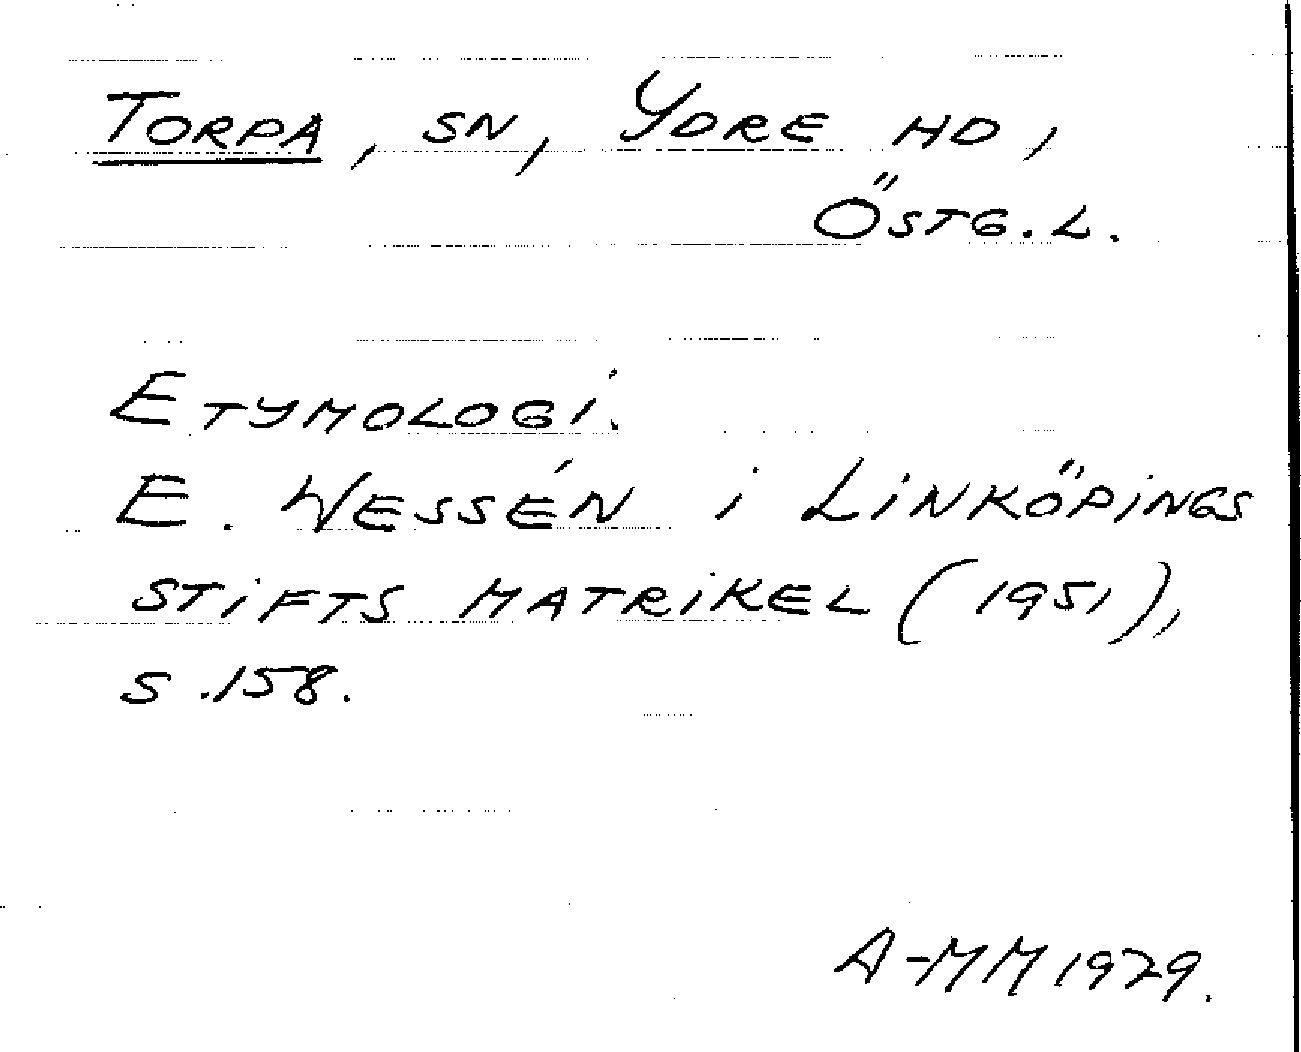 TORPA, SN, YDRE HD,
ÖSTG. L.
ETYMOLOGI.
E. WESSÉN i LINKÖPINGS
STIFTS MATRIKEL (1951),
S. 158.
A-MM 1979.